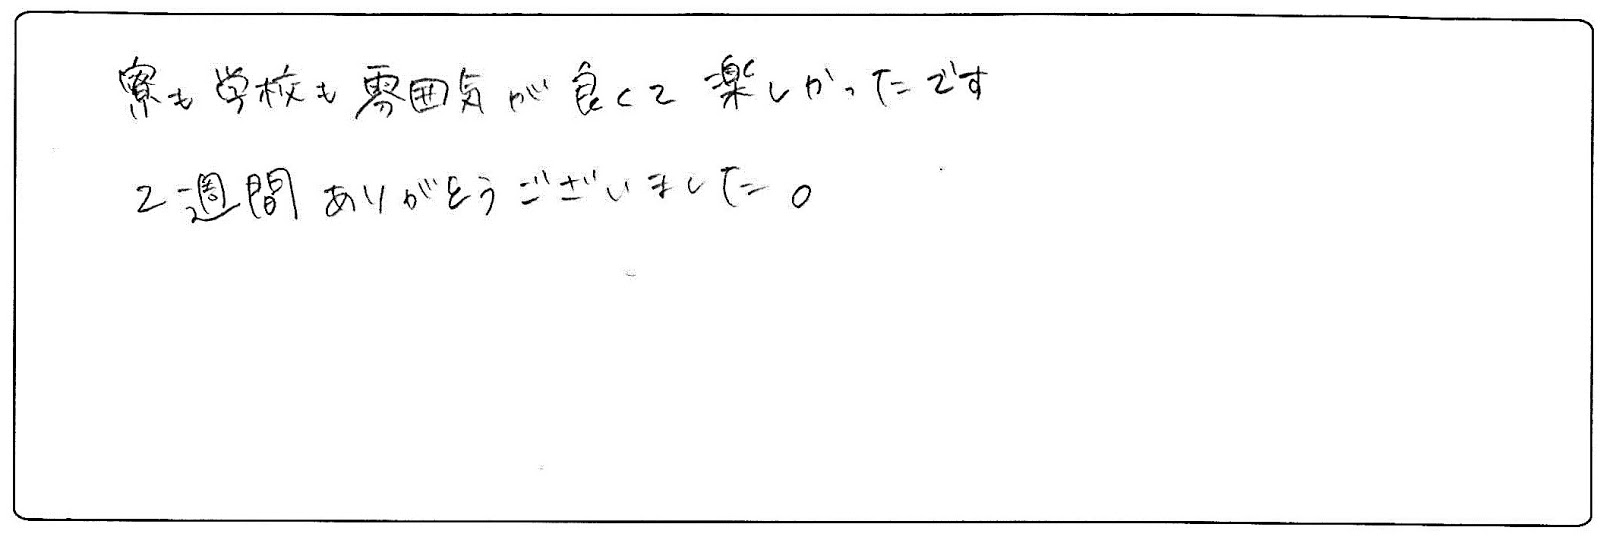 寮も学校も雰囲気が良くて楽しかったです
2週間ありがとうございました。